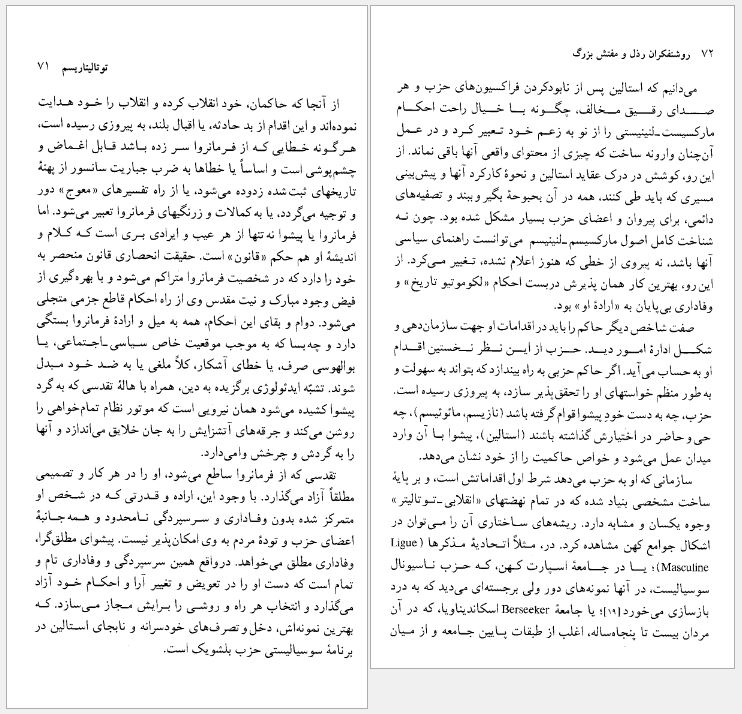 توتالیتاریسم ۷۱
از آنجا که حاکمان، خود انقلاب کرده و انقلاب را خود هدایت
نموده‌اند و این اقدام از بد حادثه، یا اقبال بلند، به پیروزی رسیده است،
هرگونه خطایی که از فرمانروا سر زده باشد قابل اغماض و
چشم‌پوشی است و اساساً یا خطاها به ضرب جباریت سانسور از پهنهٔ
تاریخهای ثبت‌شده زدوده می‌شود، یا از راه تفسیرهای «معوج» دور
و توجیه می‌گردد، یا به کمالات و زرنگیهای فرمانروا تعبیر می‌شود. اما
فرمانروا یا پیشوا نه‌تنها از هر عیب و ایرادی بری است که کلام و
اندیشهٔ او هم حکم «قانون» است. حقیقت انحصاری قانون منحصر به
خود را دارد که در شخصیت فرمانروا متراکم می‌شود و با بهره‌گیری از
فیض وجود مبارک و نیت مقدس وی از راه احکام قاطع جزمی متجلی
می‌شود. دوام و بقای این احکام، همه به میل و ارادهٔ فرمانروا بستگی
دارد و چه‌بسا که به موجب موقعیت خاص سیاسی-اجتماعی، یا
بوالهوسی صرف، یا خطای آشکار، کلاً ملغی یا به ضد خود مبدل
شوند. تشبّه ایدئولوژی برگزیده به دین، همراه با هالهٔ تقدسی که به گرد
پیشوا کشیده می‌شود همان نیرویی است که موتور نظام تمام‌خواهی را
روشن می‌کند و جرقه‌های آتشزایش را به جان خلایق می‌اندازد و آنها
را به گردش و چرخش وامی‌دارد.
تقدسی که از فرمانروا ساطع می‌شود، او را در هر کار و تصمیمی
مطلقاً آزاد می‌گذارد. با وجود این، اراده و قدرتی که در شخص او
متمرکز شده بدون وفاداری و سرسپردگی نامحدود و همه‌جانبهٔ
اعضای حزب و تودهٔ مردم به وی امکان‌پذیر نیست. پیشوای مطلق‌گرا،
وفاداری مطلق می‌خواهد. درواقع همین سرسپردگی و وفاداری تام و
تمام است که دست او را در تعویض و تغییر آرا و احکام خود آزاد
می‌گذارد و انتخاب هر راه و روشی را برایش مجاز می‌سازد. که
بهترین نمونه‌اش، دخل و تصرف‌های خودسرانه و نابجای استالین در
برنامهٔ سوسیالیستی حزب بلشویک است.
۷۲ روشنفکران رذل و مفتش بزرگ
می‌دانیم که استالین پس از نابودکردن فراکسیون‌های حزب و هر
صدای رقیق مخالف، چگونه با خیال راحت احکام
مارکسیست-لنینیستی را از نو به زعم خود تعبیر کرد و در عمل
آن‌چنان وارونه ساخت که چیزی از محتوای واقعی آنها باقی نماند. از
این رو، کوشش در درک عقاید استالین و نحوهٔ کارکرد آنها و پیش‌بینی
مسیری که باید طی کنند، همه در آن بحبوحهٔ بگیر و ببند و تصفیه‌های
دائمی، برای پیروان و اعضای حزب بسیار مشکل شده بود. چون نه
شناخت کامل اصول مارکسیسم-لنینیسم می‌توانست راهنمای سیاسی
آنها باشد، نه پیروی از خطی که هنوز اعلام نشده، تغییر می‌کرد. از
این رو، بهترین کار همان پذیرش دربست احکام «لکوموتیو تاریخ» و
وفاداری بی‌پایان به «ارادهٔ او» بود.
صفت شاخص دیگر حاکم را باید در اقدامات او جهت سازمان‌دهی و
شکل ادارهٔ امور دید. حزب از این نظر نخستین اقدام
او به حساب می‌آید. اگر حاکم حزبی به راه بیندازد که بتواند به سهولت و
به طور منظم خواستهای او را تحقق‌پذیر سازد، به پیروزی رسیده است.
حزب، چه به دست خودِ پیشوا قوام گرفته باشد (نازیسم، مائوئیسم)، چه
حی و حاضر در اختیارش گذاشته باشند (استالین)، پیشوا با آن وارد
میدان عمل می‌شود و خواص حاکمیت را از خود نشان می‌دهد.
سازمانی که او به حزب می‌دهد شرط اول اقداماتش است، و بر پایهٔ
ساخت مشخصی بنیاد شده که در تمام نهضتهای «انقلابی-توتالیتر»
وجوه یکسان و مشابه دارد. ریشه‌های ساختاری آن را می‌توان در
اشکال جوامع کهن مشاهده کرد. در، مثلاً اتحادیهٔ مذکرها (Ligue
Masculine)؛ یا در جامعهٔ اسپارت کهن، که حزب ناسیونال
سوسیالیست، در آنها نمونه‌های دور ولی برجسته‌ای می‌دید که به درد
بازسازی می‌خورد [۱۹]؛ یا جامعهٔ Berseeker اسکاندیناویا، که در آن
مردان بیست تا پنجاه‌ساله، اغلب از طبقات پایین جامعه و از میان